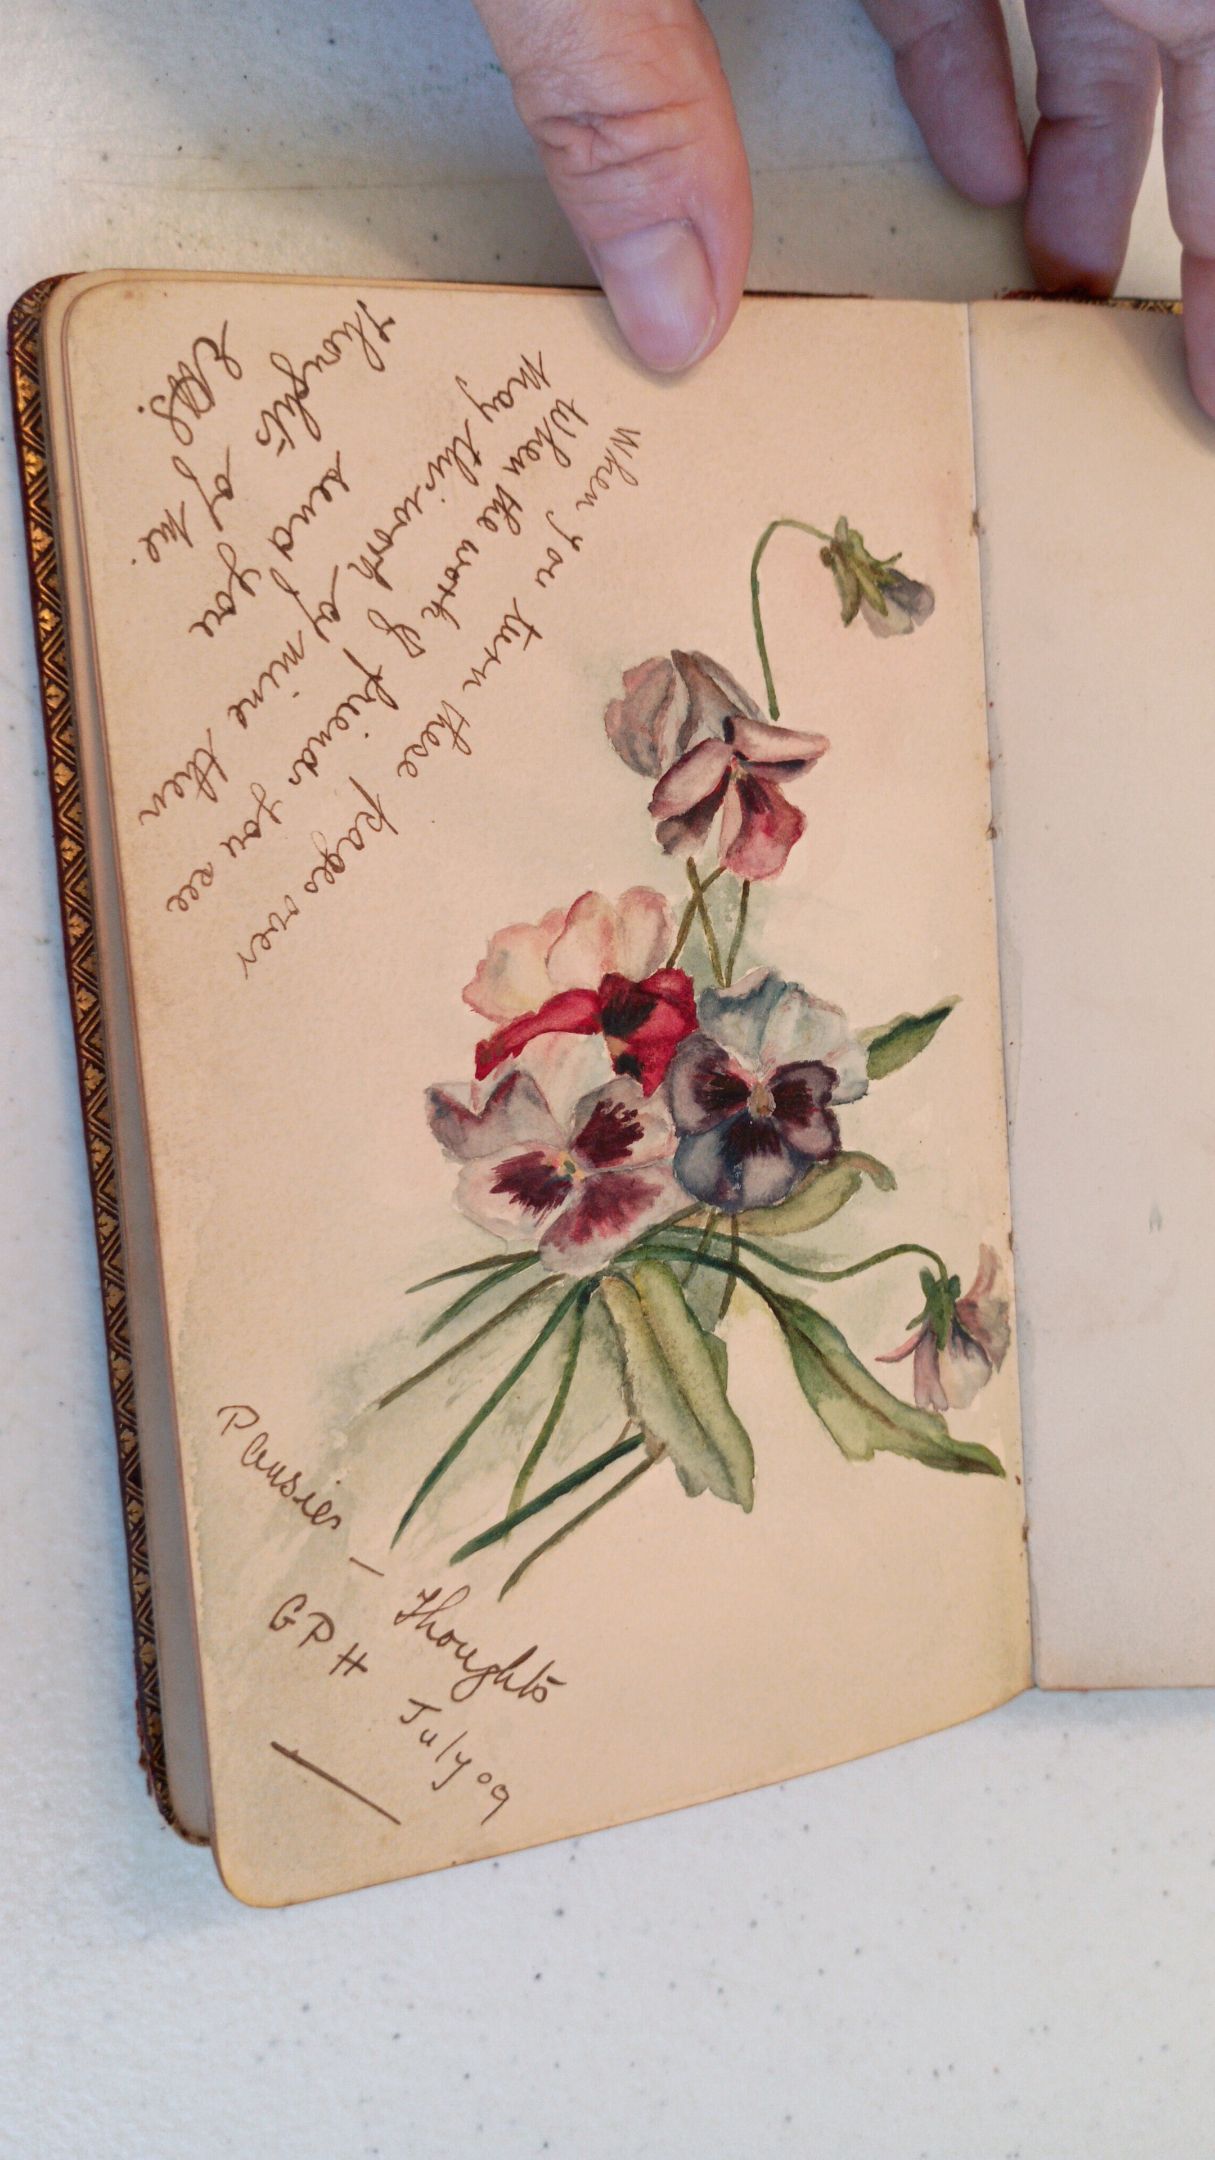 When you turn these pages over
When the work of friends you see
May this work of mine then
send you
Thoughts of me.
Pansies — Thoughts
GPH July 09